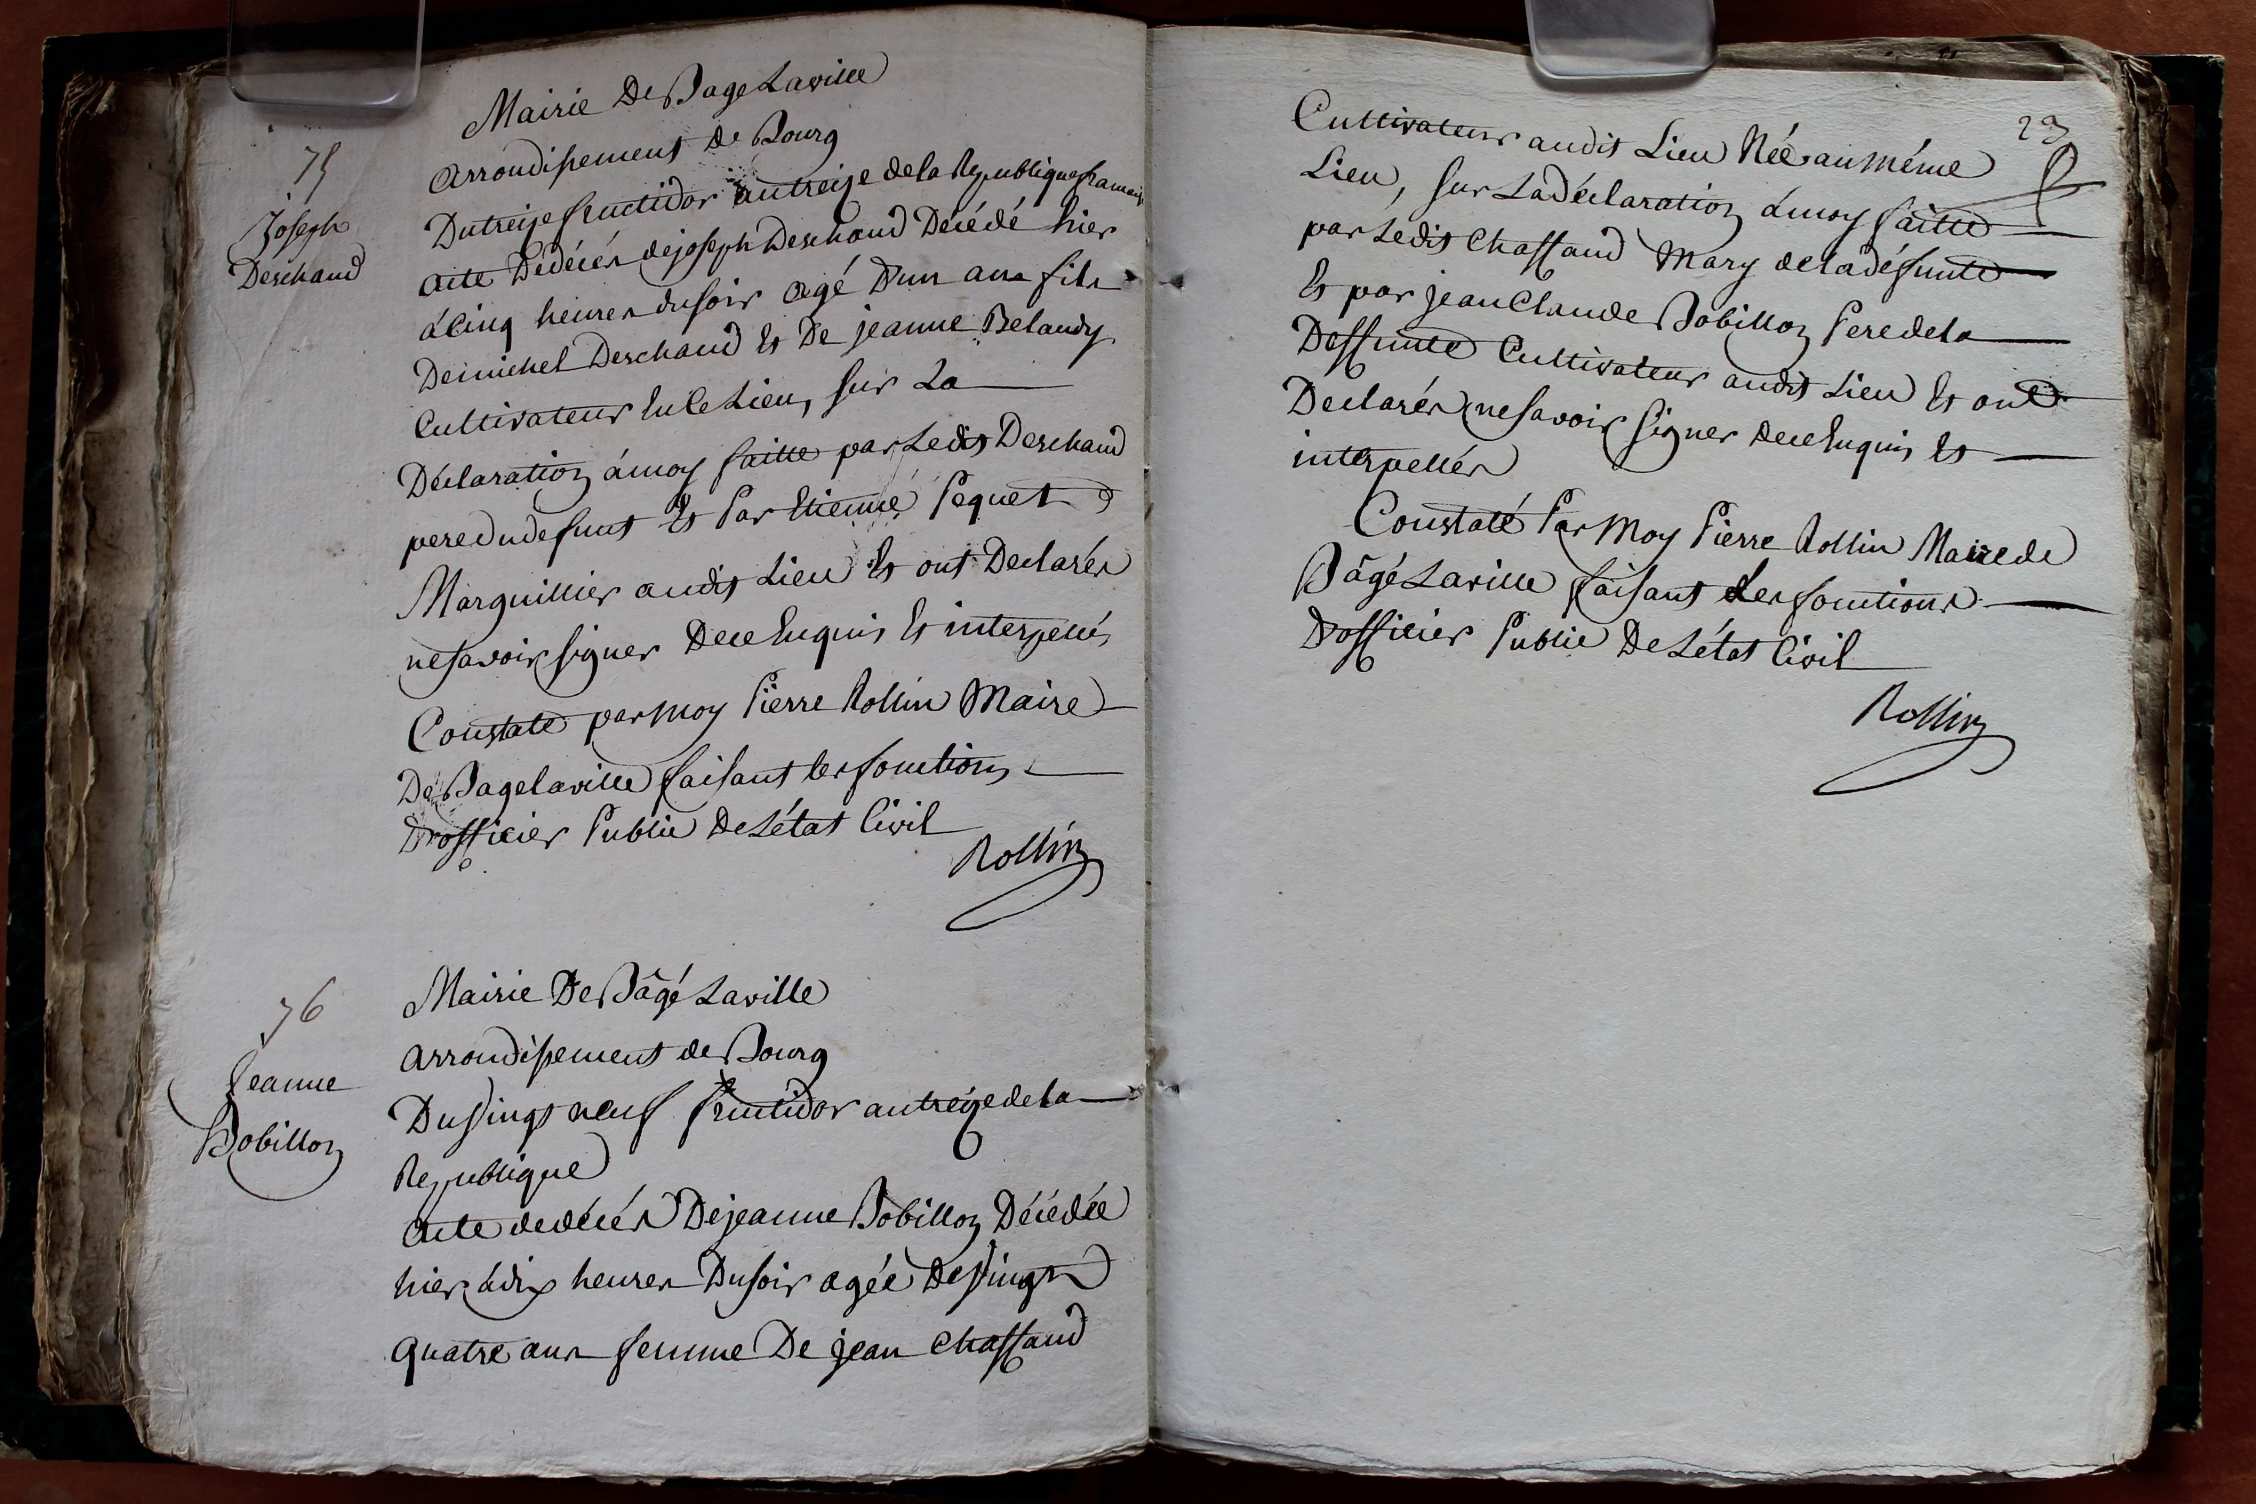 75
Joseph
Deschaud
Mairie De Bage Laville
arrondissement de Bourg
Du treize fructidor an treize de la Republique francaise
acte De décés de joseph Deschaud Décédé hier
á Cinq heures du soir agé D'un ans fils
De michel Deschaud Et De jeanne Belaudy
Cultivateur En Ce Lieu, sur La
Déclaration á moy faitte par Ledit Deschaud
pere du defunt Et Par Etienne Pequet
Marguillier audit Lieu Et ont Declarés
ne savoir signer De ce Enquis Et interpellés
Constaté par moy Pierre Rollin Maire
De Bage laville faisant les fonctions
D'officier Public De L'état Civil
Rollin
76
Jeanne
Bobillon
Mairie De Bâgé Laville
arrondissement de Bourg
Du Vingt neuf fructidor an treize de la
Republique
acte de décés De jeanne Bobillon Décédée
hier á dix heures Du soir agée De Vingt
quatre ans femme De jean Chassaud
23
Cultivateur audit Lieu Née au même
Lieu, sur La déclaration á moy faitte
par Ledit Chassaud Mary de la défunte
Et par jean Claude Bobillon Pere de la
Deffunte Cultivateur audit Lieu Et ont
Declarés ne savoir signer de ce Enquis Et
interpellés
Constaté Par Moy Pierre Rollin Maire de
Bâgé Laville faisant Les fonctions
D'officier Public De L'état Civil
Rollin